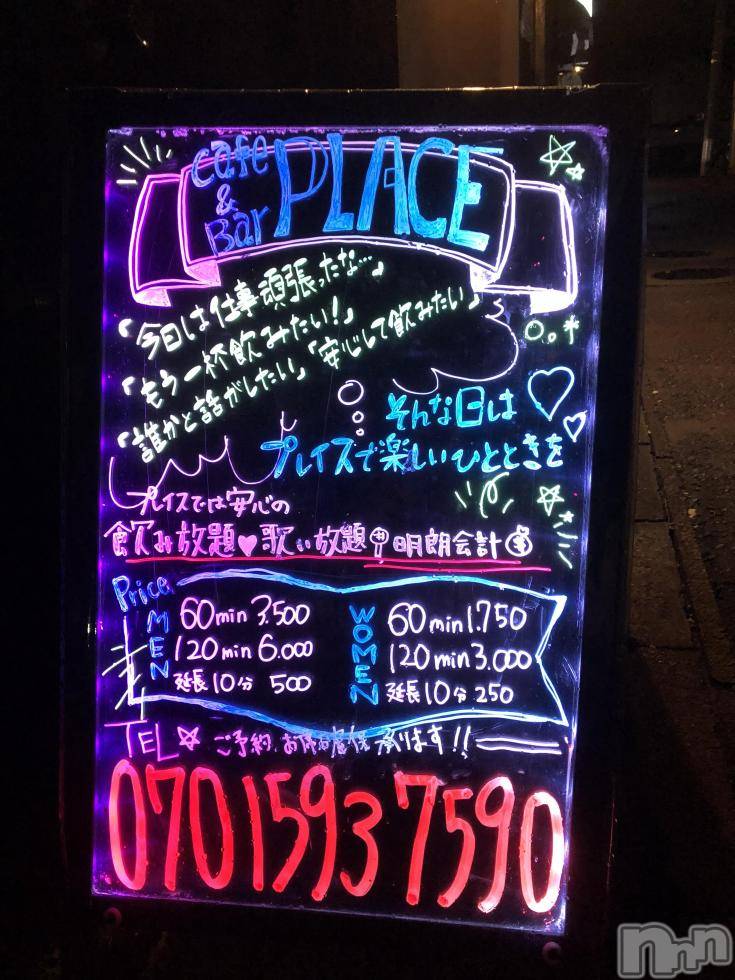 Cafe & Bar PLACE
「今日は仕事頑張ったな…」
「もう一杯飲みたい!」
「誰かと話がしたい」「安心して飲みたい」
そんな日は
プレイスで楽しいひとときを
プレイスでは安心の
飲み放題♥歌い放題 明朗会計
Price
MEN
60min 3.500
120min 6.000
延長10分 500
WOMEN
60min 1.750
120min 3.000
延長10分 250
TEL☆ ご予約、お席 承ります!!
070 1593 7590
nnn